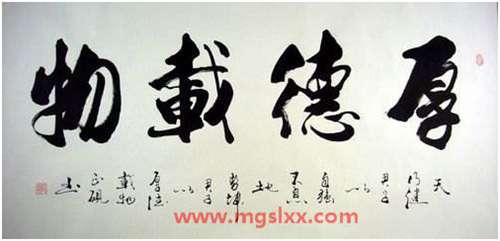 厚德載物
天行健君子以自强不息地勢坤君子以厚德載物
www.mgslxx.com